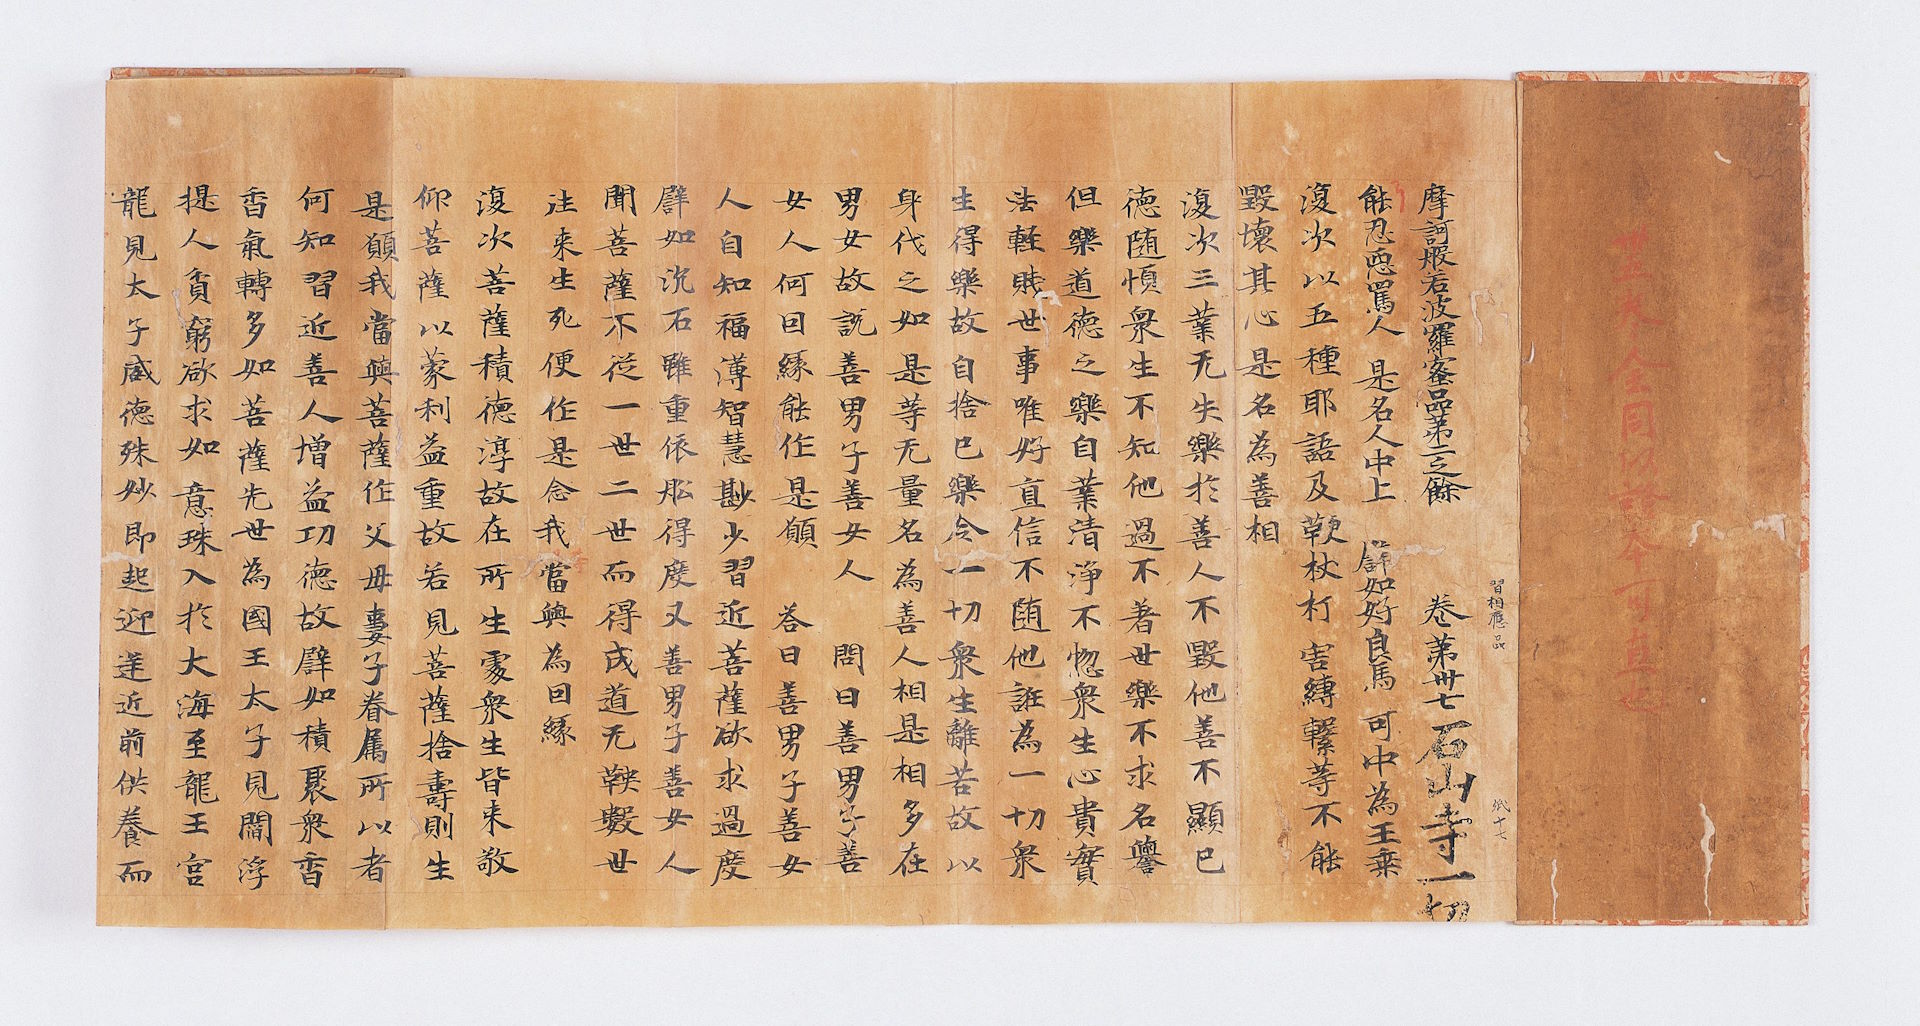 摩訶般若波羅蜜品第二之餘 卷第卌七 石山寺一切
習相應品
紙十七
能忍惡罵人 是名人中上 譬如好良馬 可中為王乗
復次以五種耶語及鞭杖打害縛繫等不能
毀壞其心是名為善相
復次三業无失樂於善人不毀他善不顯已
德隨順衆生不知他過不著世樂不求名譽
但樂道德之樂自業清淨不惚衆生心貴實
法輕賤世事唯好直信不随他誑為一切衆
生得樂故自捨已樂令一切衆生離苦故以
身代之如是等无量名為善人相是相多在
男女故說善男子善女人 問曰善男子善
女人何因緣能作是願 荅曰善男子善女
人自知福薄智慧尠少習近菩薩欲求過度
譬如沉石雖重依舩得度又善男子善女人
聞菩薩不從一世二世而得成道无鞅數世
注来生死便作是念我當與為因緣
復次菩薩積德淳故在所生處衆生皆来敬
仰菩薩以蒙利益重故若見菩薩捨壽則生
是願我當與菩薩作父母妻子眷属所以者
何知習近善人增益功德故譬如積聚衆香
香氣轉多如菩薩先世為國王太子見閻浮
提人貧窮欲求如意珠入於大海至龍王宮
龍見太子威德殊妙即起迎逆近前供養而